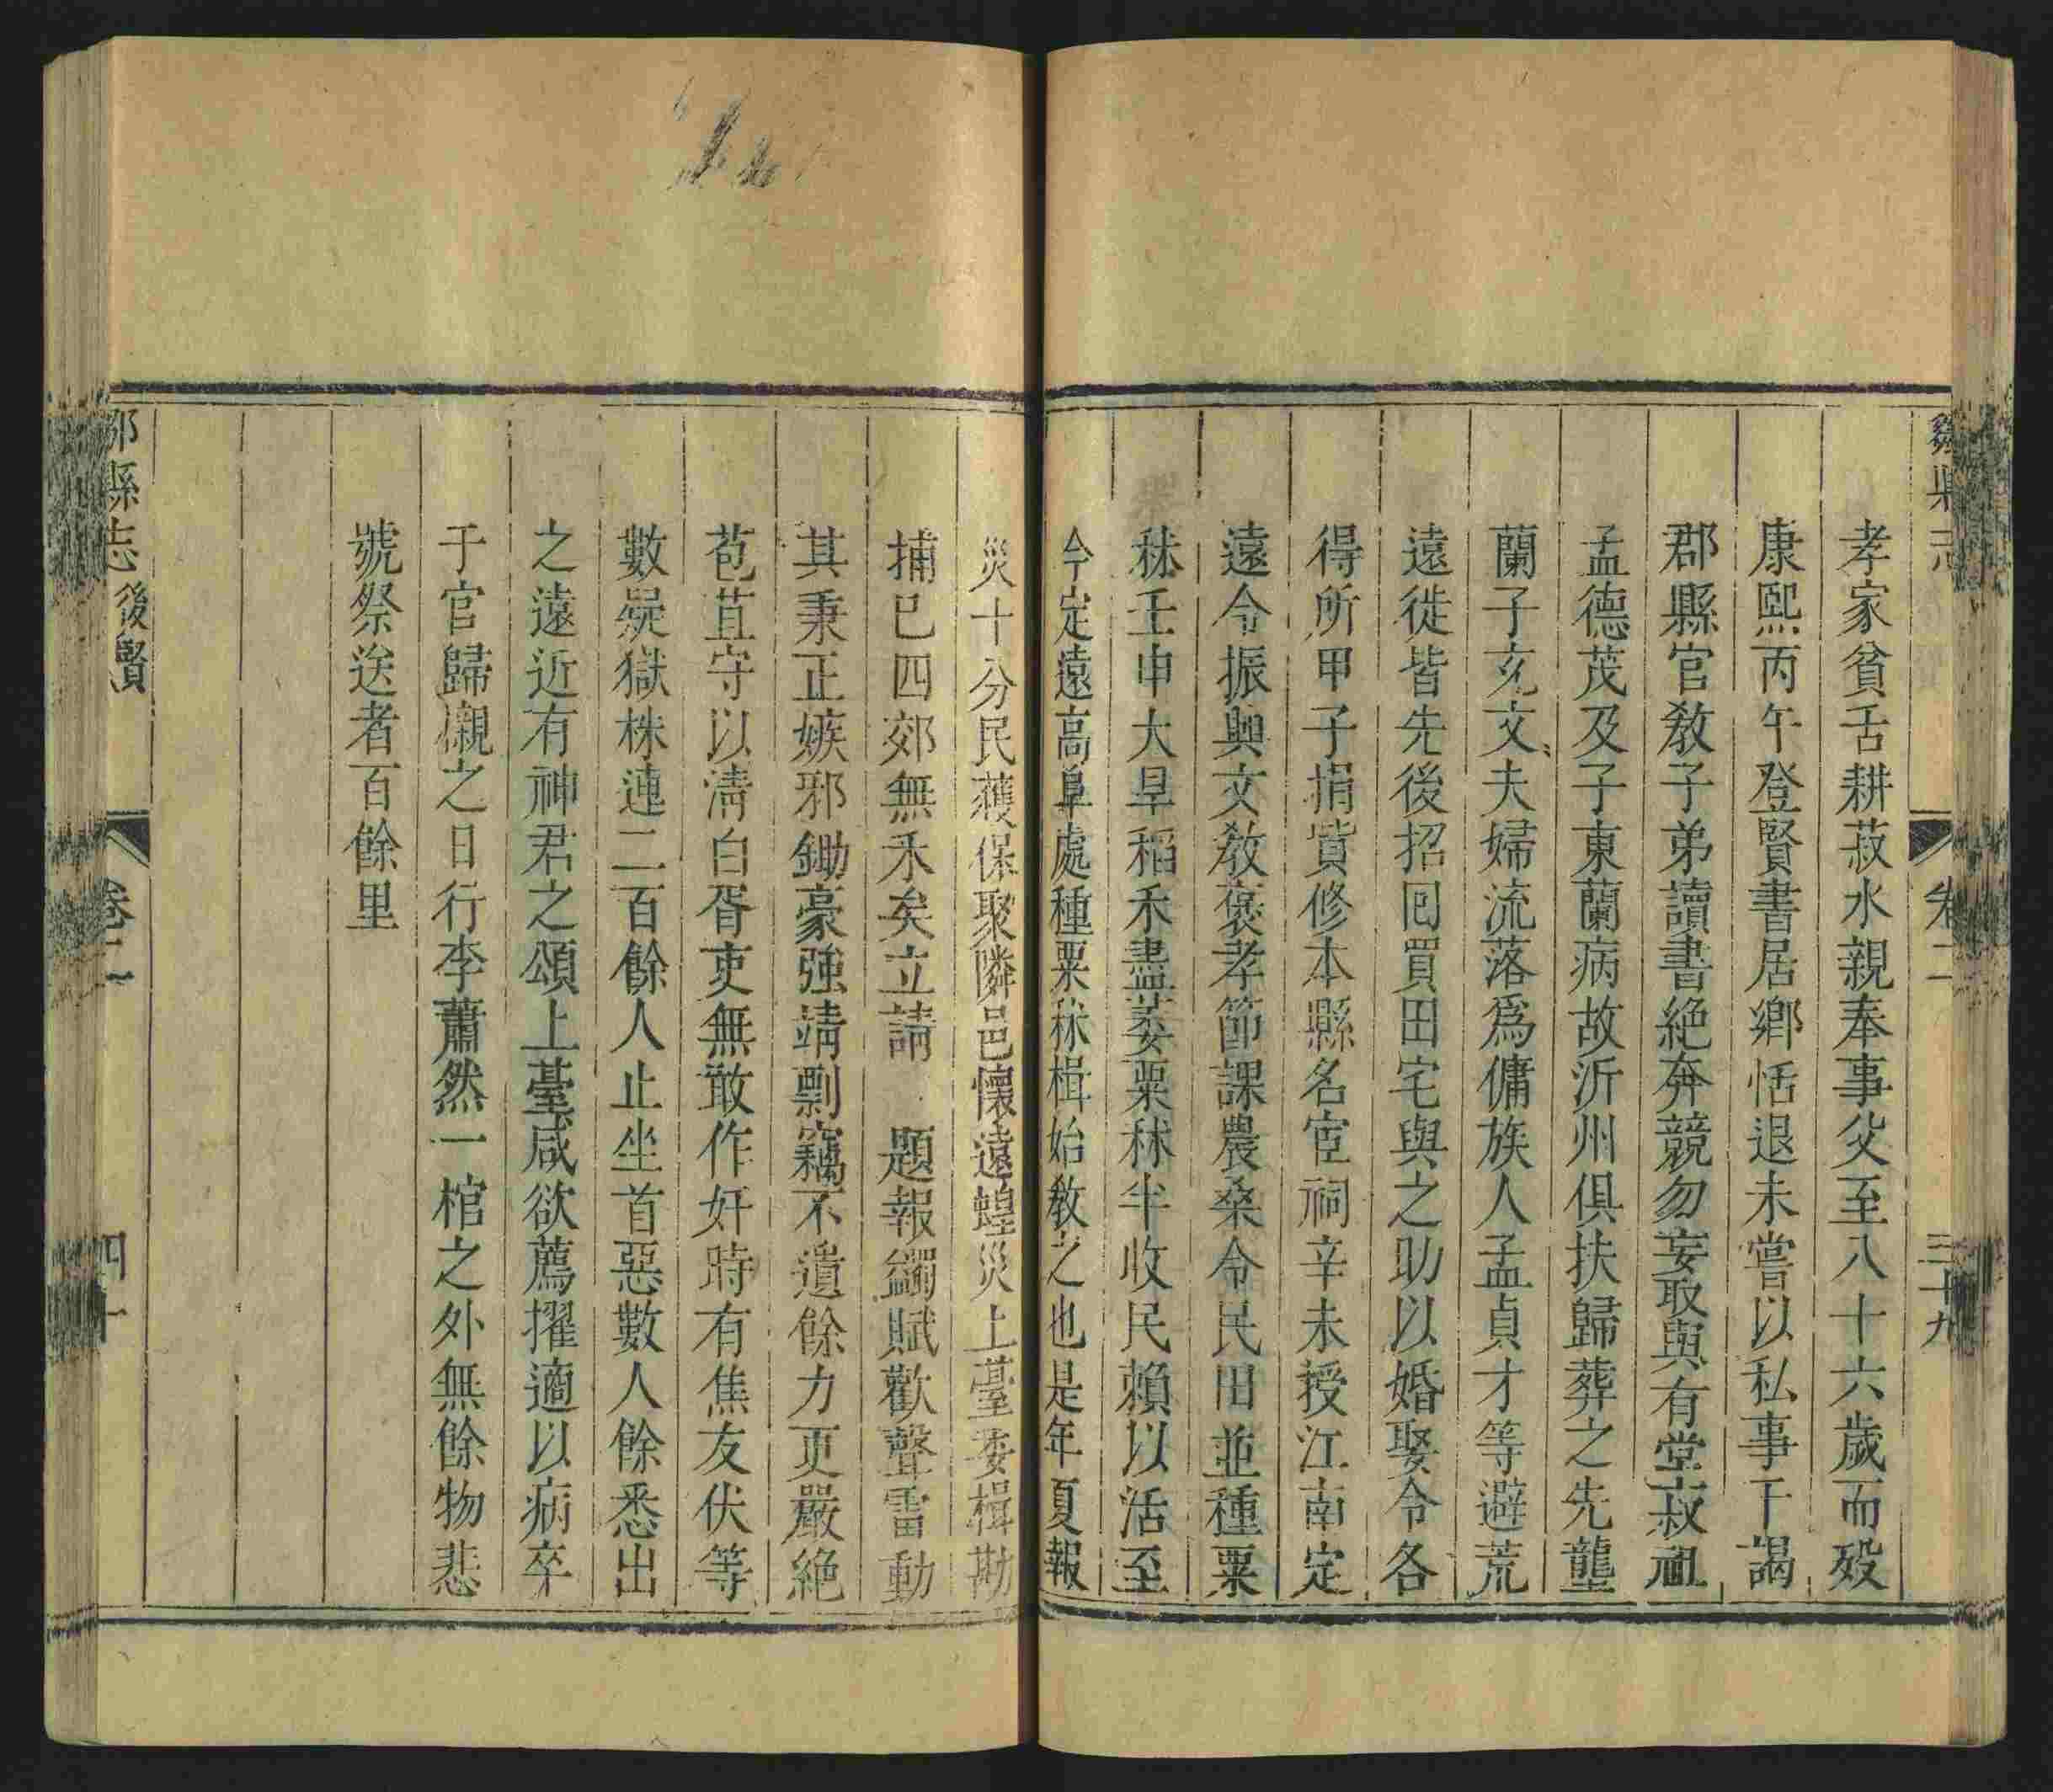 鄒縣志
卷二
三十九
孝家貧舌耕菽水親奉事父至八十六歲而歿
康熙丙午登賢書居鄉恬退未嘗以私事干謁
郡縣官教子弟讀書絶奔競勿妄取與有堂叔祖
孟德茂及子東蘭病故沂州俱扶歸葬之先壟
蘭子玄文夫婦流落爲傭族人孟貞才等避荒
遠徙皆先後招回買田宅與之助以婚娶令各
得所甲子捐貲修本縣名宦祠辛未授江南定
遠令振興文教褒孝節課農桑令民田並種粟
秫壬申大旱稻禾盡萎粟秫半收民賴以活至
今定遠高阜處種粟秫楫始教之也是年夏報
災十分民蘓保聚隣邑懷遠蝗災上臺委楫勘
捕巳四郊無禾矣立請
題報蠲賦歡聲雷動
其秉正嫉邪鋤豪強靖剽竊不遺餘力更嚴絶
苞苴守以清白胥吏無敢作奸時有焦友伏等
數疑獄株連二百餘人止坐首惡數人餘悉出
之遠近有神君之頌上臺咸欲薦擢適以病卒
于官歸櫬之日行李蕭然一棺之外無餘物悲
號祭送者百餘里
鄒縣志
後賢
卷二
四十